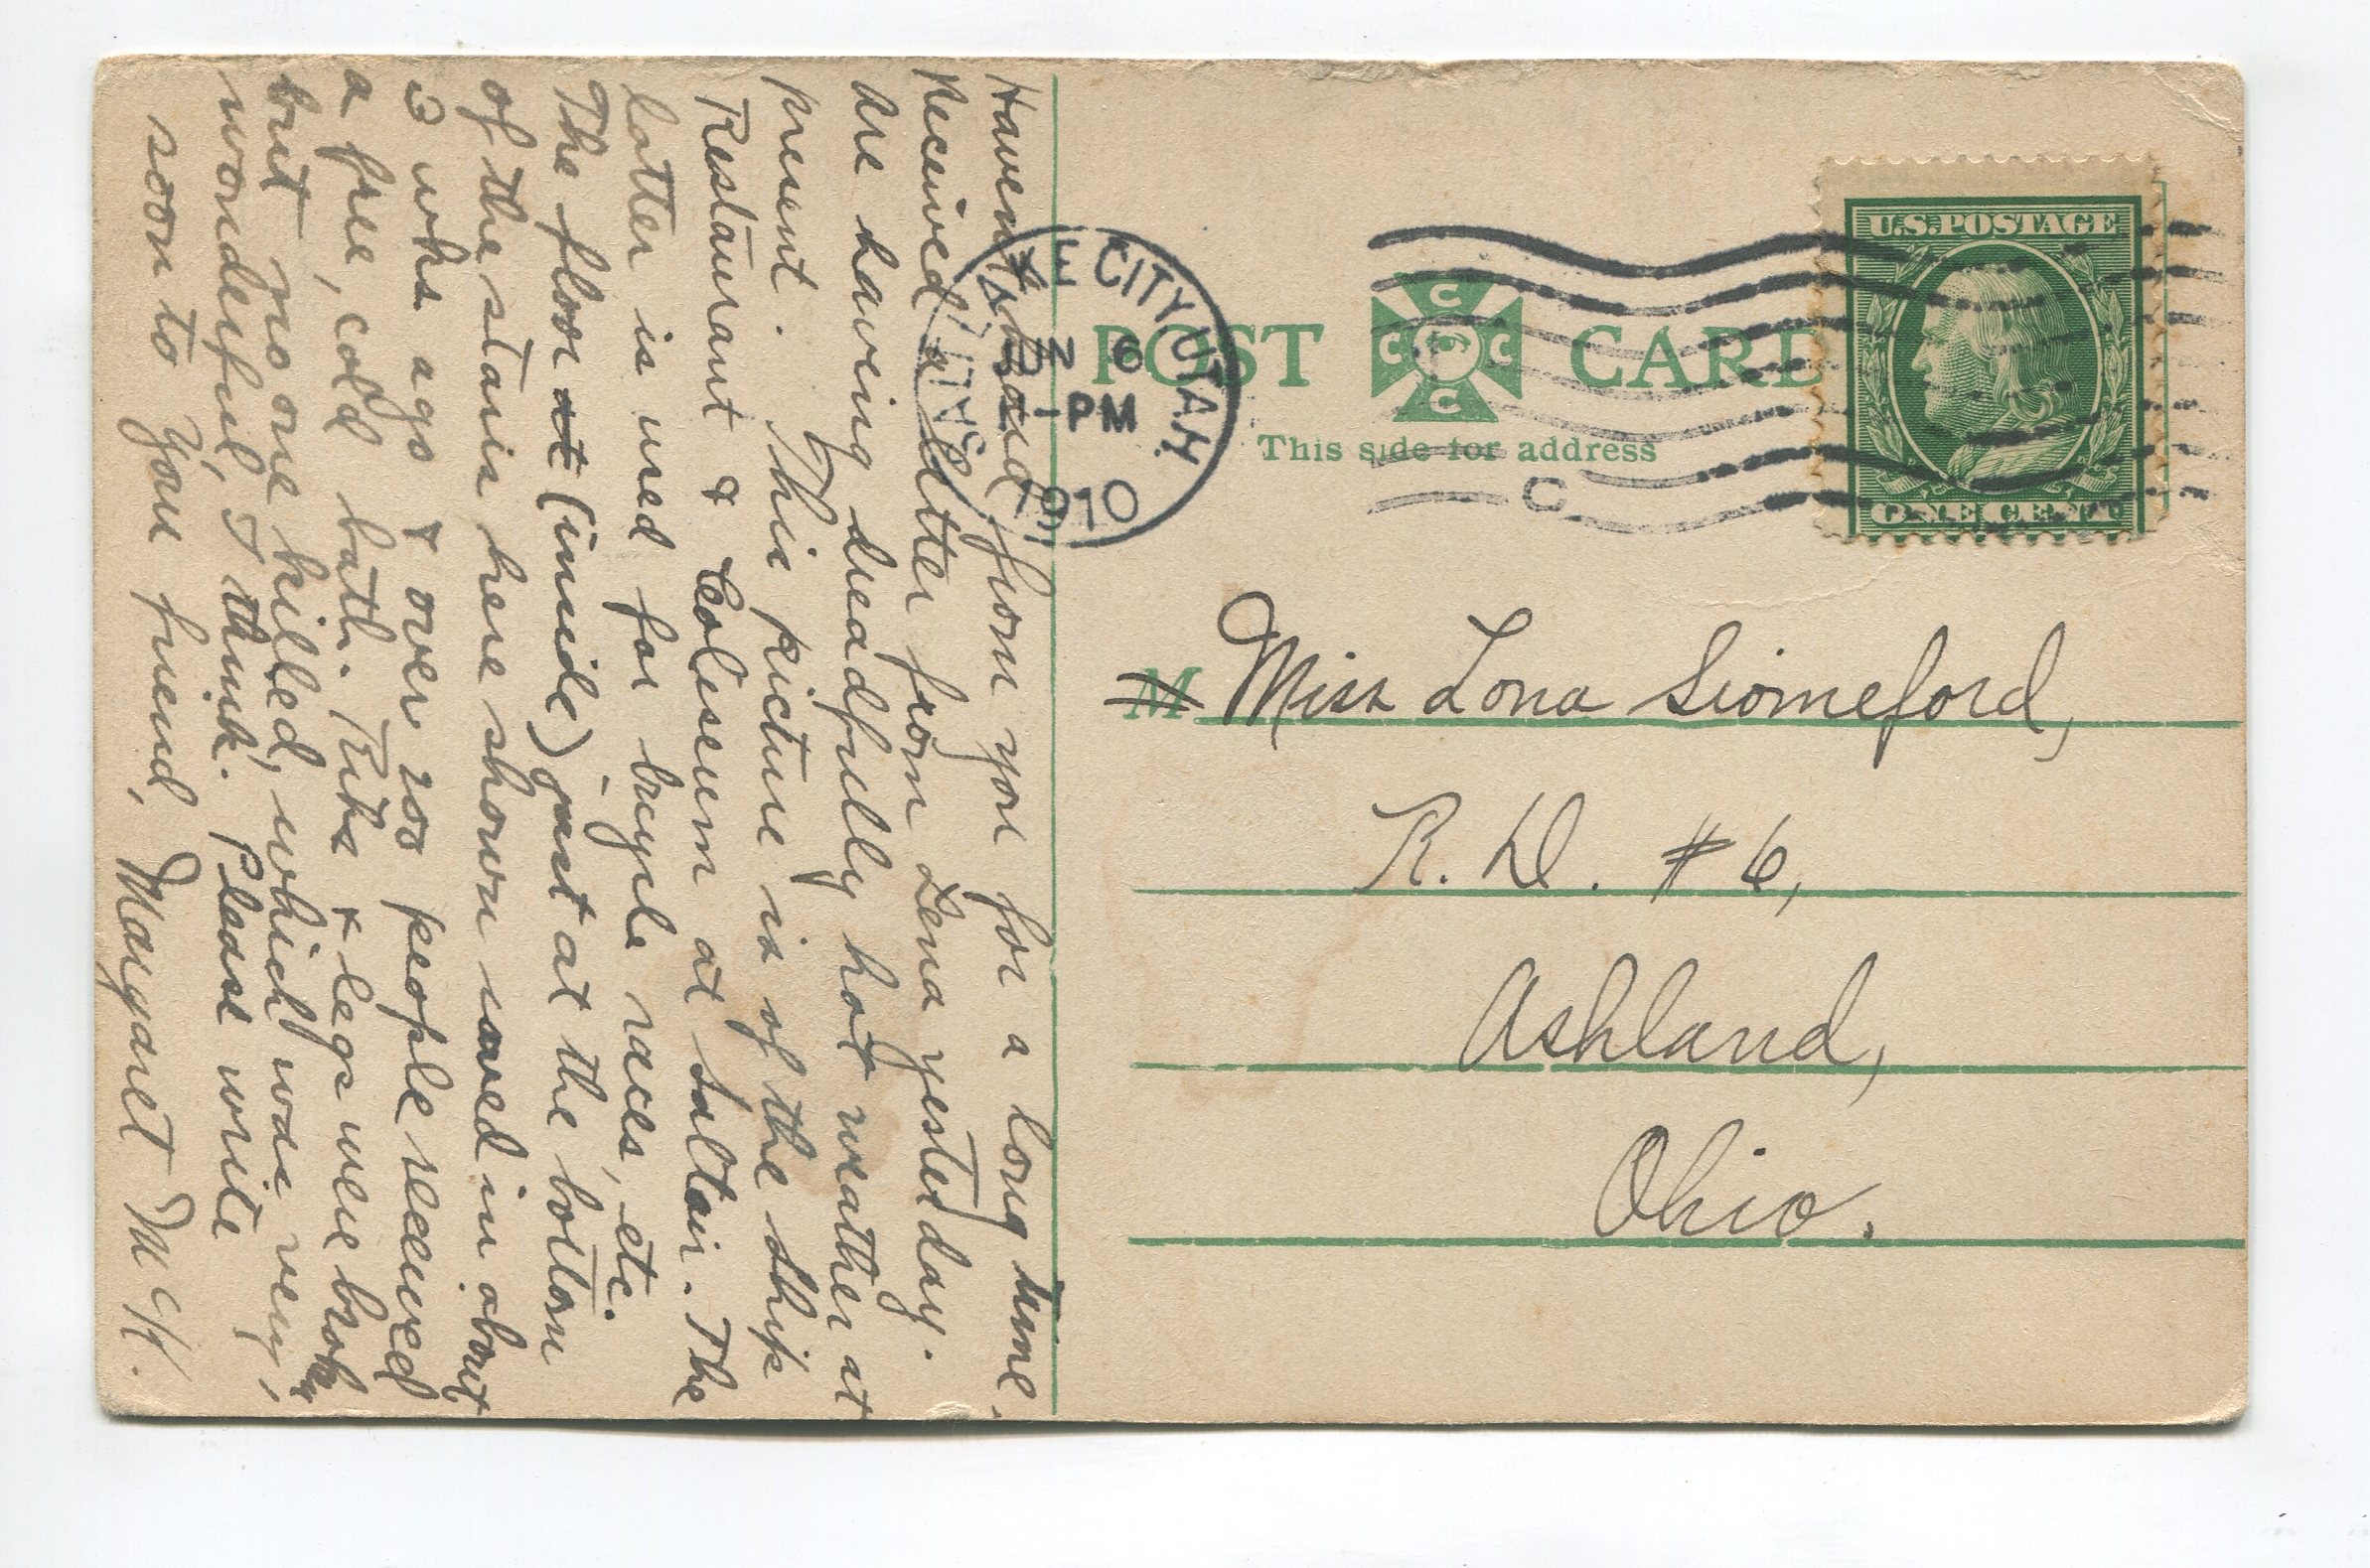 Haven't heard from you for a long time.
Received a letter from Lena yesterday.
Are having dreadfully hot weather at
present. This picture is of the Ship
Restaurant & Coliseum at Saltair. The
latter is used for bicycle races, etc.
The floor at (inside) just at the bottom
of the stairs here shown caved in about
3 wks ago & over 200 people received
a free, cold bath. Ribs & legs were broken
but no one killed, which was very,
wonderful, I think. Please write
soon to your friend, Margaret McK.
E CITY, UTAH
N 6
-PM
1910
POST CARD
C C C C
This side for address
C
U.S. POSTAGE
ONE CENT
M Miss Lona
R. D. #6,
Ashland,
Ohio.